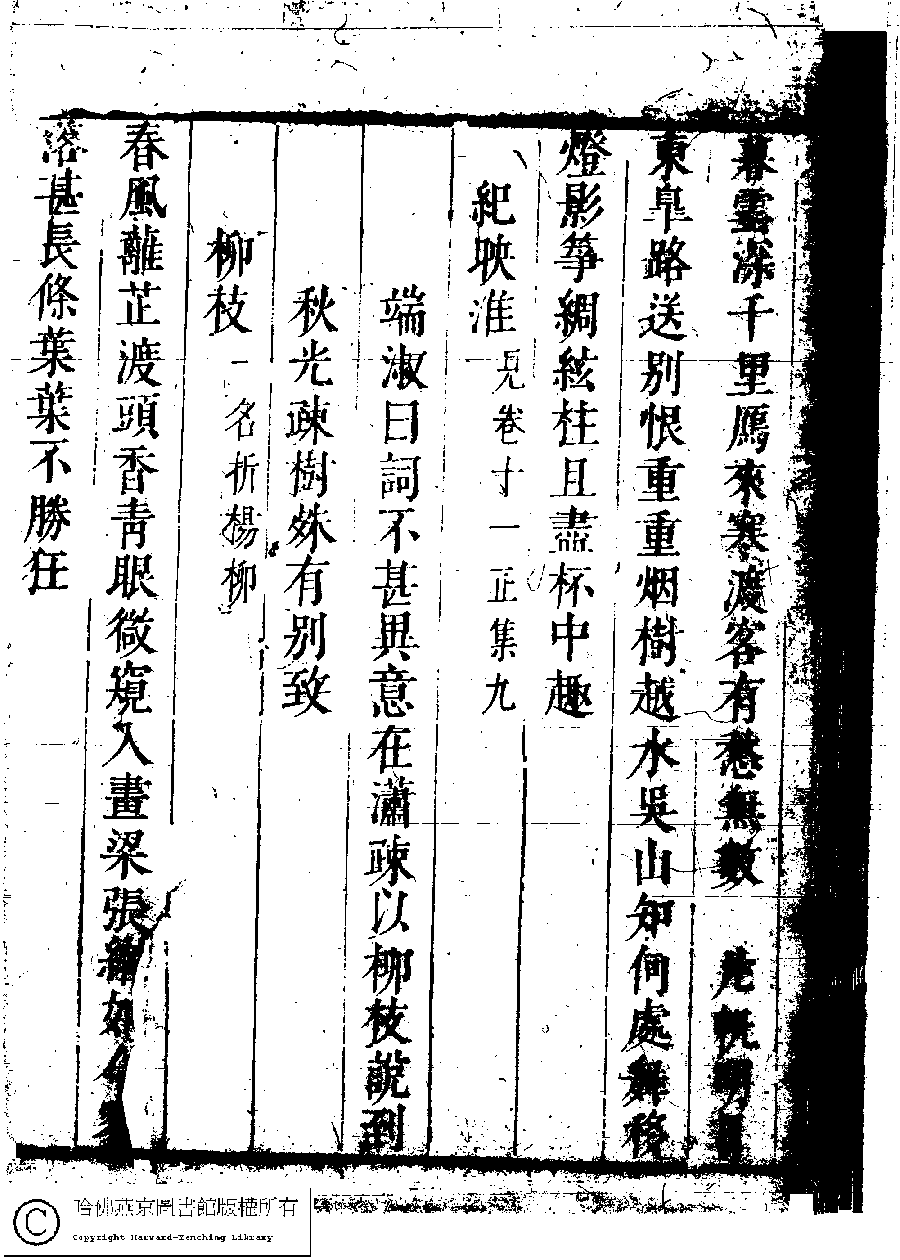 暮雲深千里鴈來寒渡客有愁無數 片帆明
東臯路送別恨重重烟樹越水吳山知何處舞移
燈影箏綢絃柱且盡杯中趣
紀映淮 見卷十一正集九
端淑曰詞不甚異意在瀟疎以柳枝說到
秋光疎樹姝有別致
柳枝 一名折楊柳
春風蘺芷渡頭香青眼微窺入畫梁張緒如今
落甚長條葉葉不勝狂
哈佛燕京圖書館版權所有
Copyright Harvard-Yenching Library